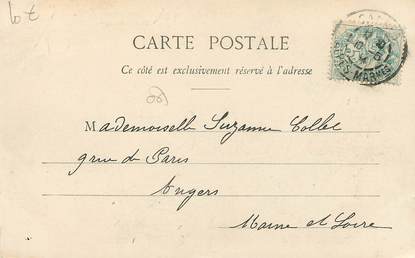 CARTE POSTALE
Ce côté est exclusivement réservé à l'adresse
Mademoiselle Suzanne Collet
9 rue de Paris
Angers
Maine et Loire